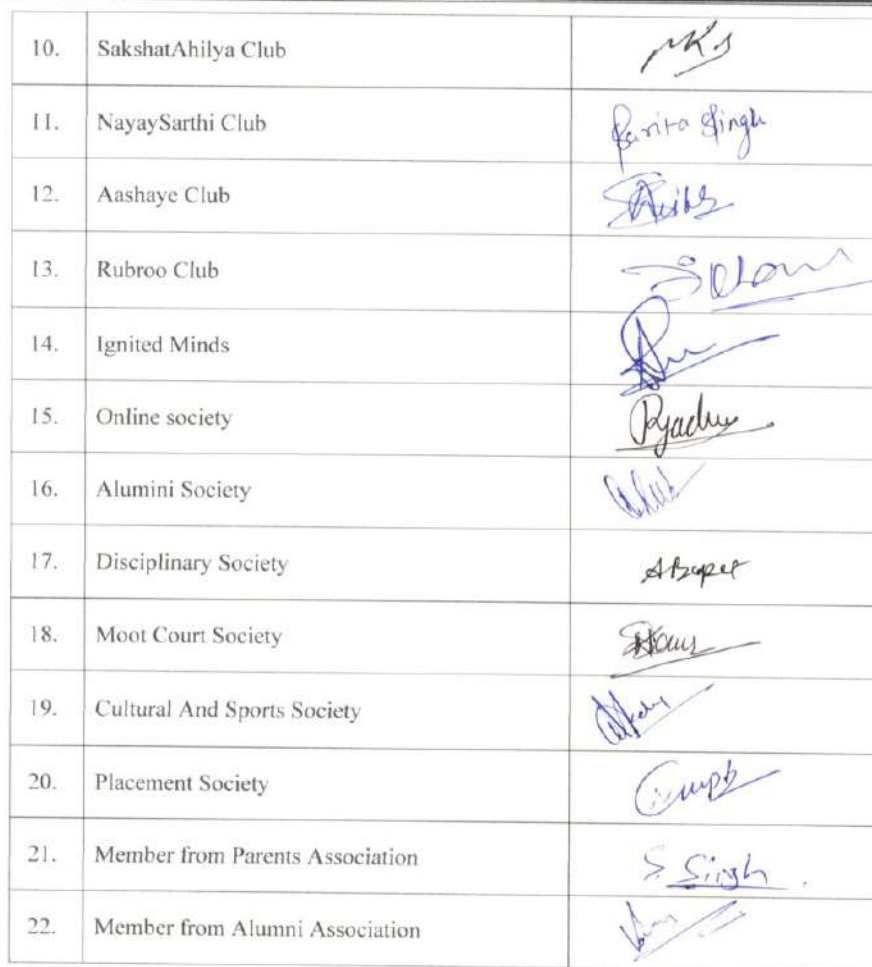 10. SakshatAhilya Club
11. NayaySarthi Club Sarita Singh
12. Aashaye Club
13. Rubroo Club
14. Ignited Minds
15. Online society
16. Alumini Society
17. Disciplinary Society
18. Moot Court Society
19. Cultural And Sports Society
20. Placement Society
21. Member from Parents Association S. Singh
22. Member from Alumni Association